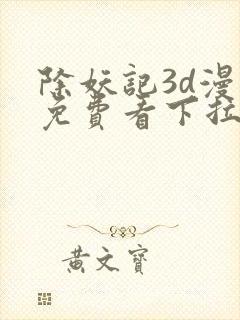 除妖記3d漫
免費看下拉
黃文寶